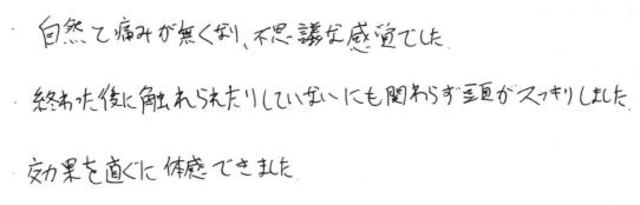 ・自然と痛みが無くなり、不思議な感覚でした。
・終わった後に触れられたりしていないにも関わらず頭がスッキリしました。
・効果を直ぐに体感できました。